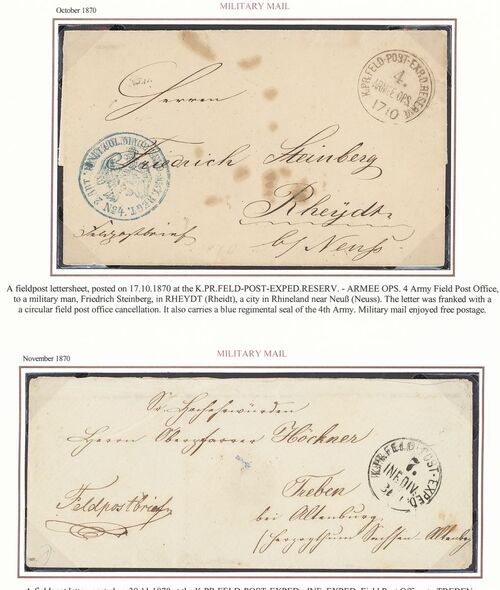 October 1870
MILITARY MAIL
Herren
Friedrich Steinberg
Rheydt
b/ Neuss
Feldpostbrief
K.PR.FELD-POST-EXP.D.RESERVE
4.
ARMEE OPS.
17 10
A fieldpost lettersheet, posted on 17.10.1870 at the K.PR.FELD-POST-EXPED.RESERV. - ARMEE OPS. 4 Army Field Post Office,
to a military man, Friedrich Steinberg, in RHEYDT (Rheidt), a city in Rhineland near Neuß (Neuss). The letter was franked with a
a circular field post office cancellation. It also carries a blue regimental seal of the 4th Army. Military mail enjoyed free postage.
November 1870
MILITARY MAIL
Sr. Hochehrwürden
Herrn Oberpfarrer Höckner
Treben
bei Altenburg
Feldpostbrief
/Herzogthum Sachsen Altenbg
K.PR.FELD-POST-EXPED.
7.
INF.DIV.